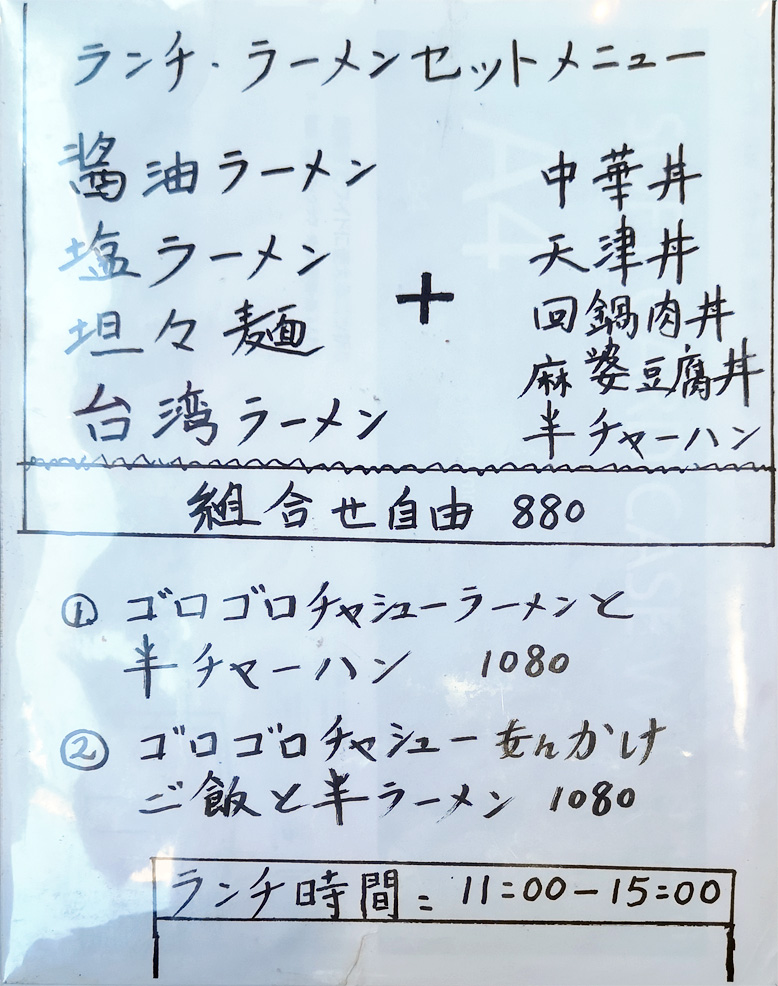 ランチ・ラーメンセットメニュー
醤油ラーメン
塩ラーメン
坦々麺
台湾ラーメン
+
中華丼
天津丼
回鍋肉丼
麻婆豆腐丼
半チャーハン
組合せ自由 880
① ゴロゴロチャシューラーメンと
半チャーハン 1080
② ゴロゴロチャシューあんかけ
ご飯と半ラーメン 1080
ランチ時間=11:00-15:00